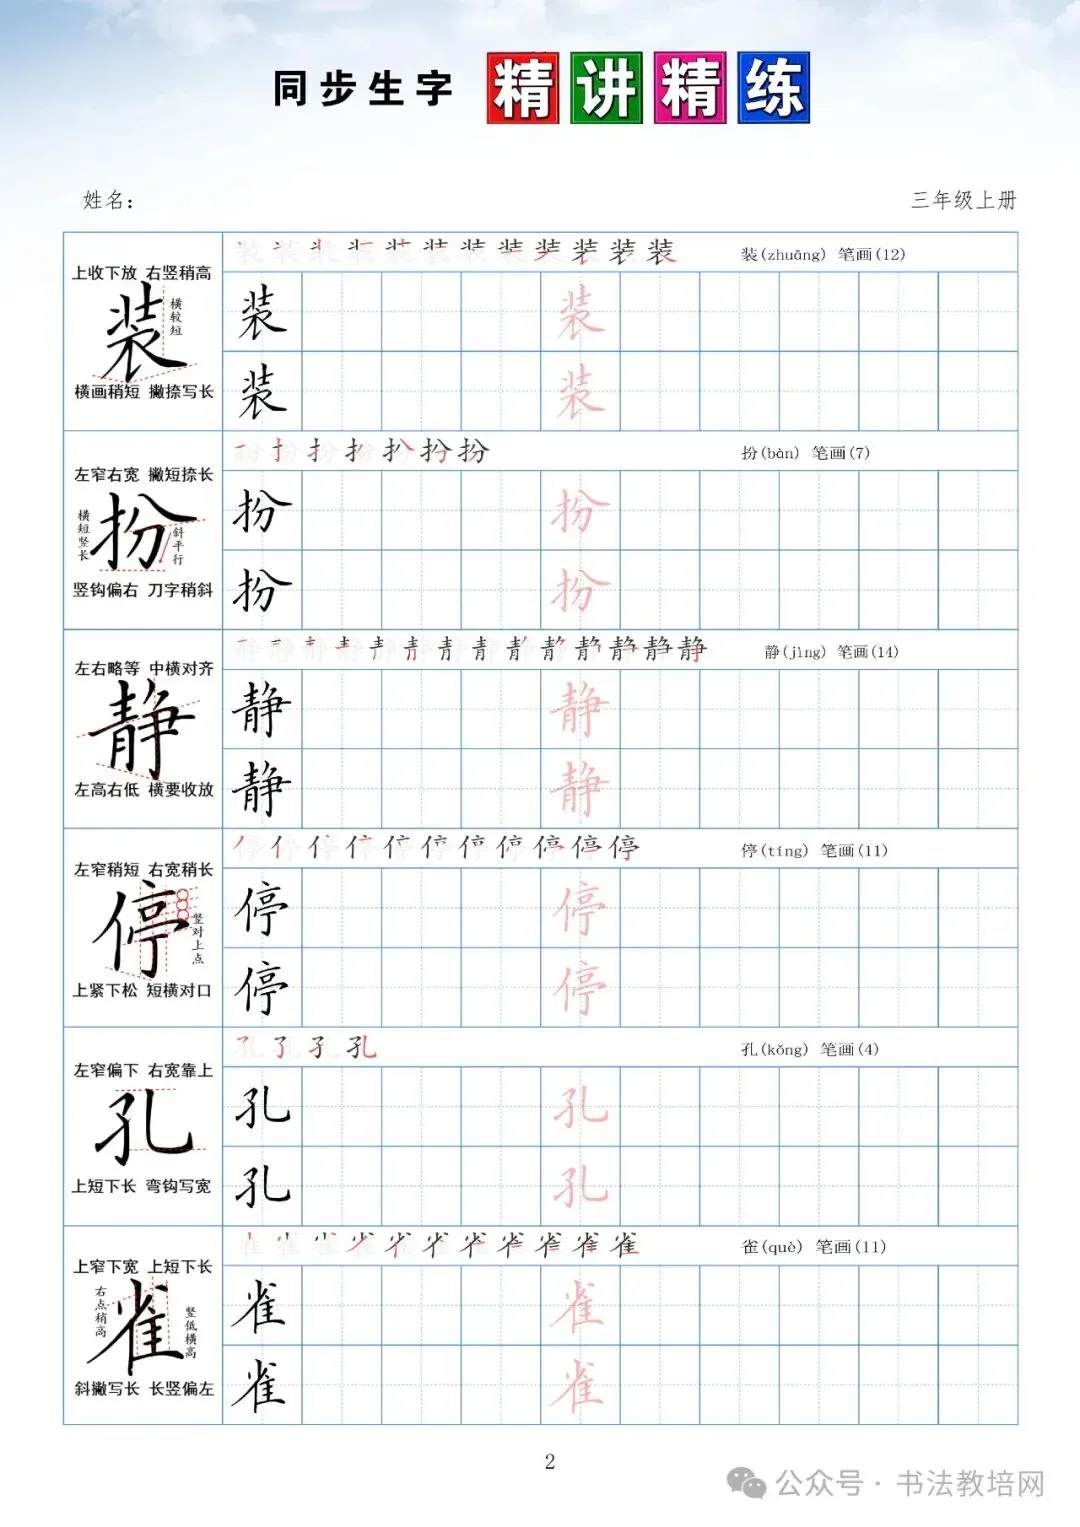 同步生字 精讲精练
姓名： 三年级上册
装(zhuāng) 笔画(12)
上收下放 右竖稍高
装
横较短
横画稍短 撇捺写长
装 装
装 装
扮(bàn) 笔画(7)
左窄右宽 撇短捺长
扮
横短竖长
斜平行
竖钩偏右 刀字稍斜
扮 扮
扮 扮
静(jìng) 笔画(14)
左右略等 中横对齐
静
左高右低 横要收放
静 静
静 静
停(tíng) 笔画(11)
左窄稍短 右宽稍长
停
竖对上点
上紧下松 短横对口
停 停
停 停
孔(kǒng) 笔画(4)
左窄偏下 右宽靠上
孔
上短下长 弯钩写宽
孔 孔
孔 孔
雀(què) 笔画(11)
上窄下宽 上短下长
雀
右点稍高
竖低横高
斜撇写长 长竖偏左
雀 雀
雀 雀
2
公众号·书法教培网